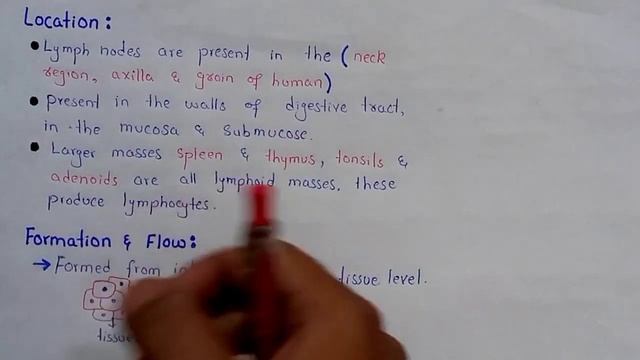 Location:
• Lymph nodes are present in the (neck
region, axilla & groin of human)
• Present in the walls of digestive tract,
in the mucosa & submucose.
• Larger masses spleen & thymus, tonsils &
adenoids are all lymphoid masses. these
produce lymphocytes.
Formation & Flow:
→ Formed from tissue level.
tissue